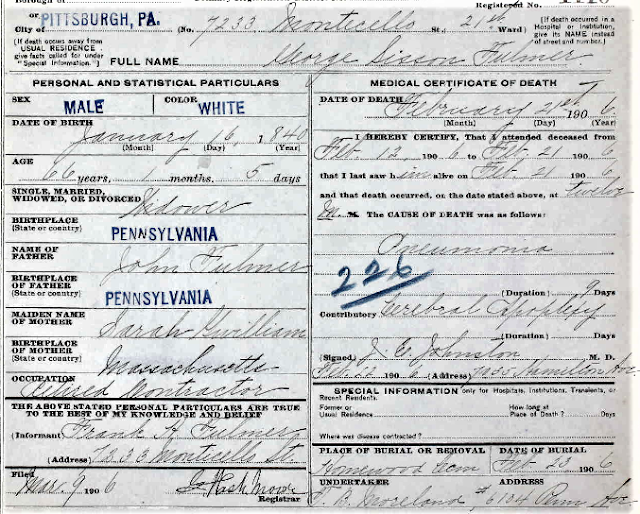 Registered No.
or PITTSBURGH, PA. (No. 7233 Monticello St. 21st Ward)
City of
(If death occurs away from USUAL RESIDENCE give facts called for under "Special Information.")
(If death occurred in a Hospital or Institution, give its NAME instead of street and number.)
FULL NAME George Sisson Fulmer
PERSONAL AND STATISTICAL PARTICULARS
SEX MALE COLOR WHITE
DATE OF BIRTH
January 16, 1840
(Month) (Day) (Year)
AGE
66 years, 1 months. 5 days
SINGLE, MARRIED,
WIDOWED, OR DIVORCED Widower
BIRTHPLACE
(State or country) PENNSYLVANIA
NAME OF
FATHER John Fulmer
BIRTHPLACE
OF FATHER PENNSYLVANIA
(State or country)
MAIDEN NAME
OF MOTHER Sarah Gwilliam
BIRTHPLACE
OF MOTHER
(State or country) Massachusetts
OCCUPATION Retired Contractor
THE ABOVE STATED PERSONAL PARTICULARS ARE TRUE
TO THE BEST OF MY KNOWLEDGE AND BELIEF
(Informant) Frank H. Fulmer
(Address) 7233 Monticello St.
Filed
Mar. 9 1906
Registrar
MEDICAL CERTIFICATE OF DEATH
DATE OF DEATH February 21st 1906
(Month) (Day) (Year)
I HEREBY CERTIFY, That I attended deceased from
Feb. 12 1906 to Feb. 21 1906
that I last saw him alive on Feb. 21 1906
and that death occurred, on the date stated above, at twelve
M. The CAUSE OF DEATH was as follows:
Pneumonia
226
(Duration) 9 Days
Contributory Cerebral Apoplexy
(Duration) Days
(Signed) J. C. Johnston M. D.
Feb. 22 1906 (Address) Hamilton Ave
SPECIAL INFORMATION only for Hospitals, Institutions, Transients, or Recent Residents.
Former or Usual Residence
How long at Place of Death? Days
Where was disease contracted?
PLACE OF BURIAL OR REMOVAL DATE OF BURIAL
Homewood Cem Feb. 23 1906
UNDERTAKER ADDRESS
T. B. Moreland # 6104 Penn Ave